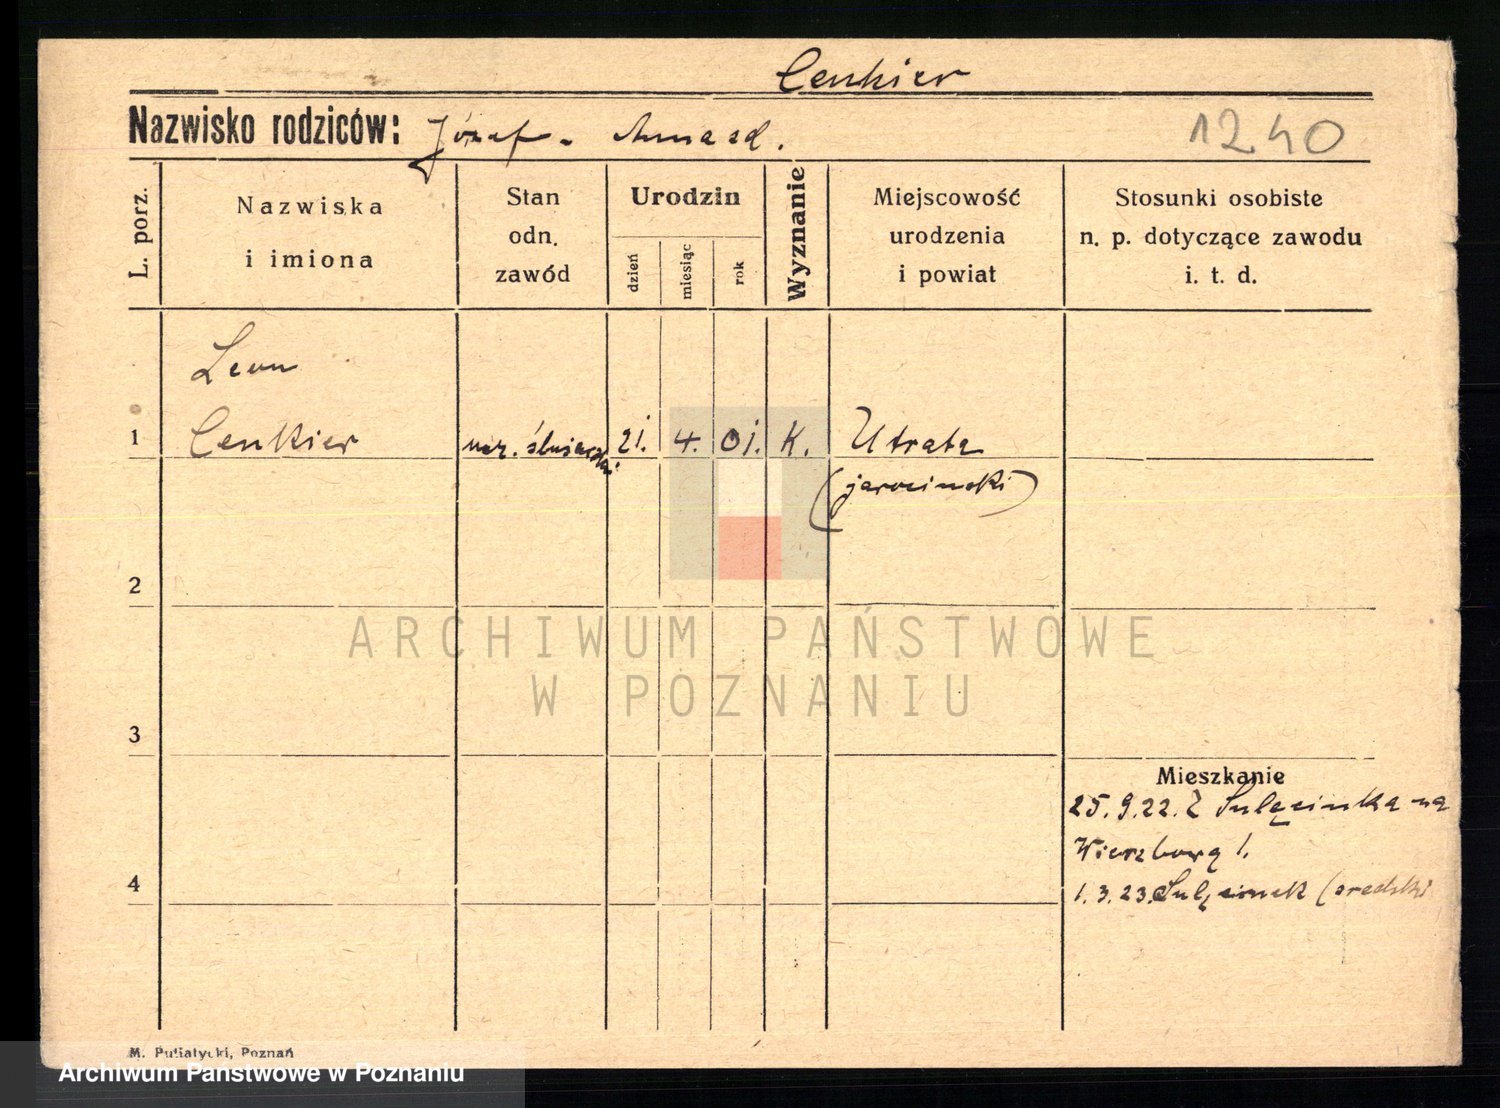 Cenkier
Nazwisko rodziców: Józef - 
1240
L. porz.
Nazwiska
i imiona
Stan
odn.
zawód
Urodzin
dzień
miesiąc
rok
Wyznanie
Miejscowość
urodzenia
i powiat
Stosunki osobiste
n. p. dotyczące zawodu
i. t. d.
Leon
1 Cenkier ucz. ślusarski 21. 4. 01. K. Utrata
(jarocinski)
2
ARCHIWUM PAŃSTWOWE
W POZNANIU
3
Mieszkanie
25.9.22. Z Sulęcinka na
Wierzbową 1.
4
1.3.23. Sulęcinek (sredzki
M. Putiatycki, Poznań
Archiwum Państwowe w Poznaniu